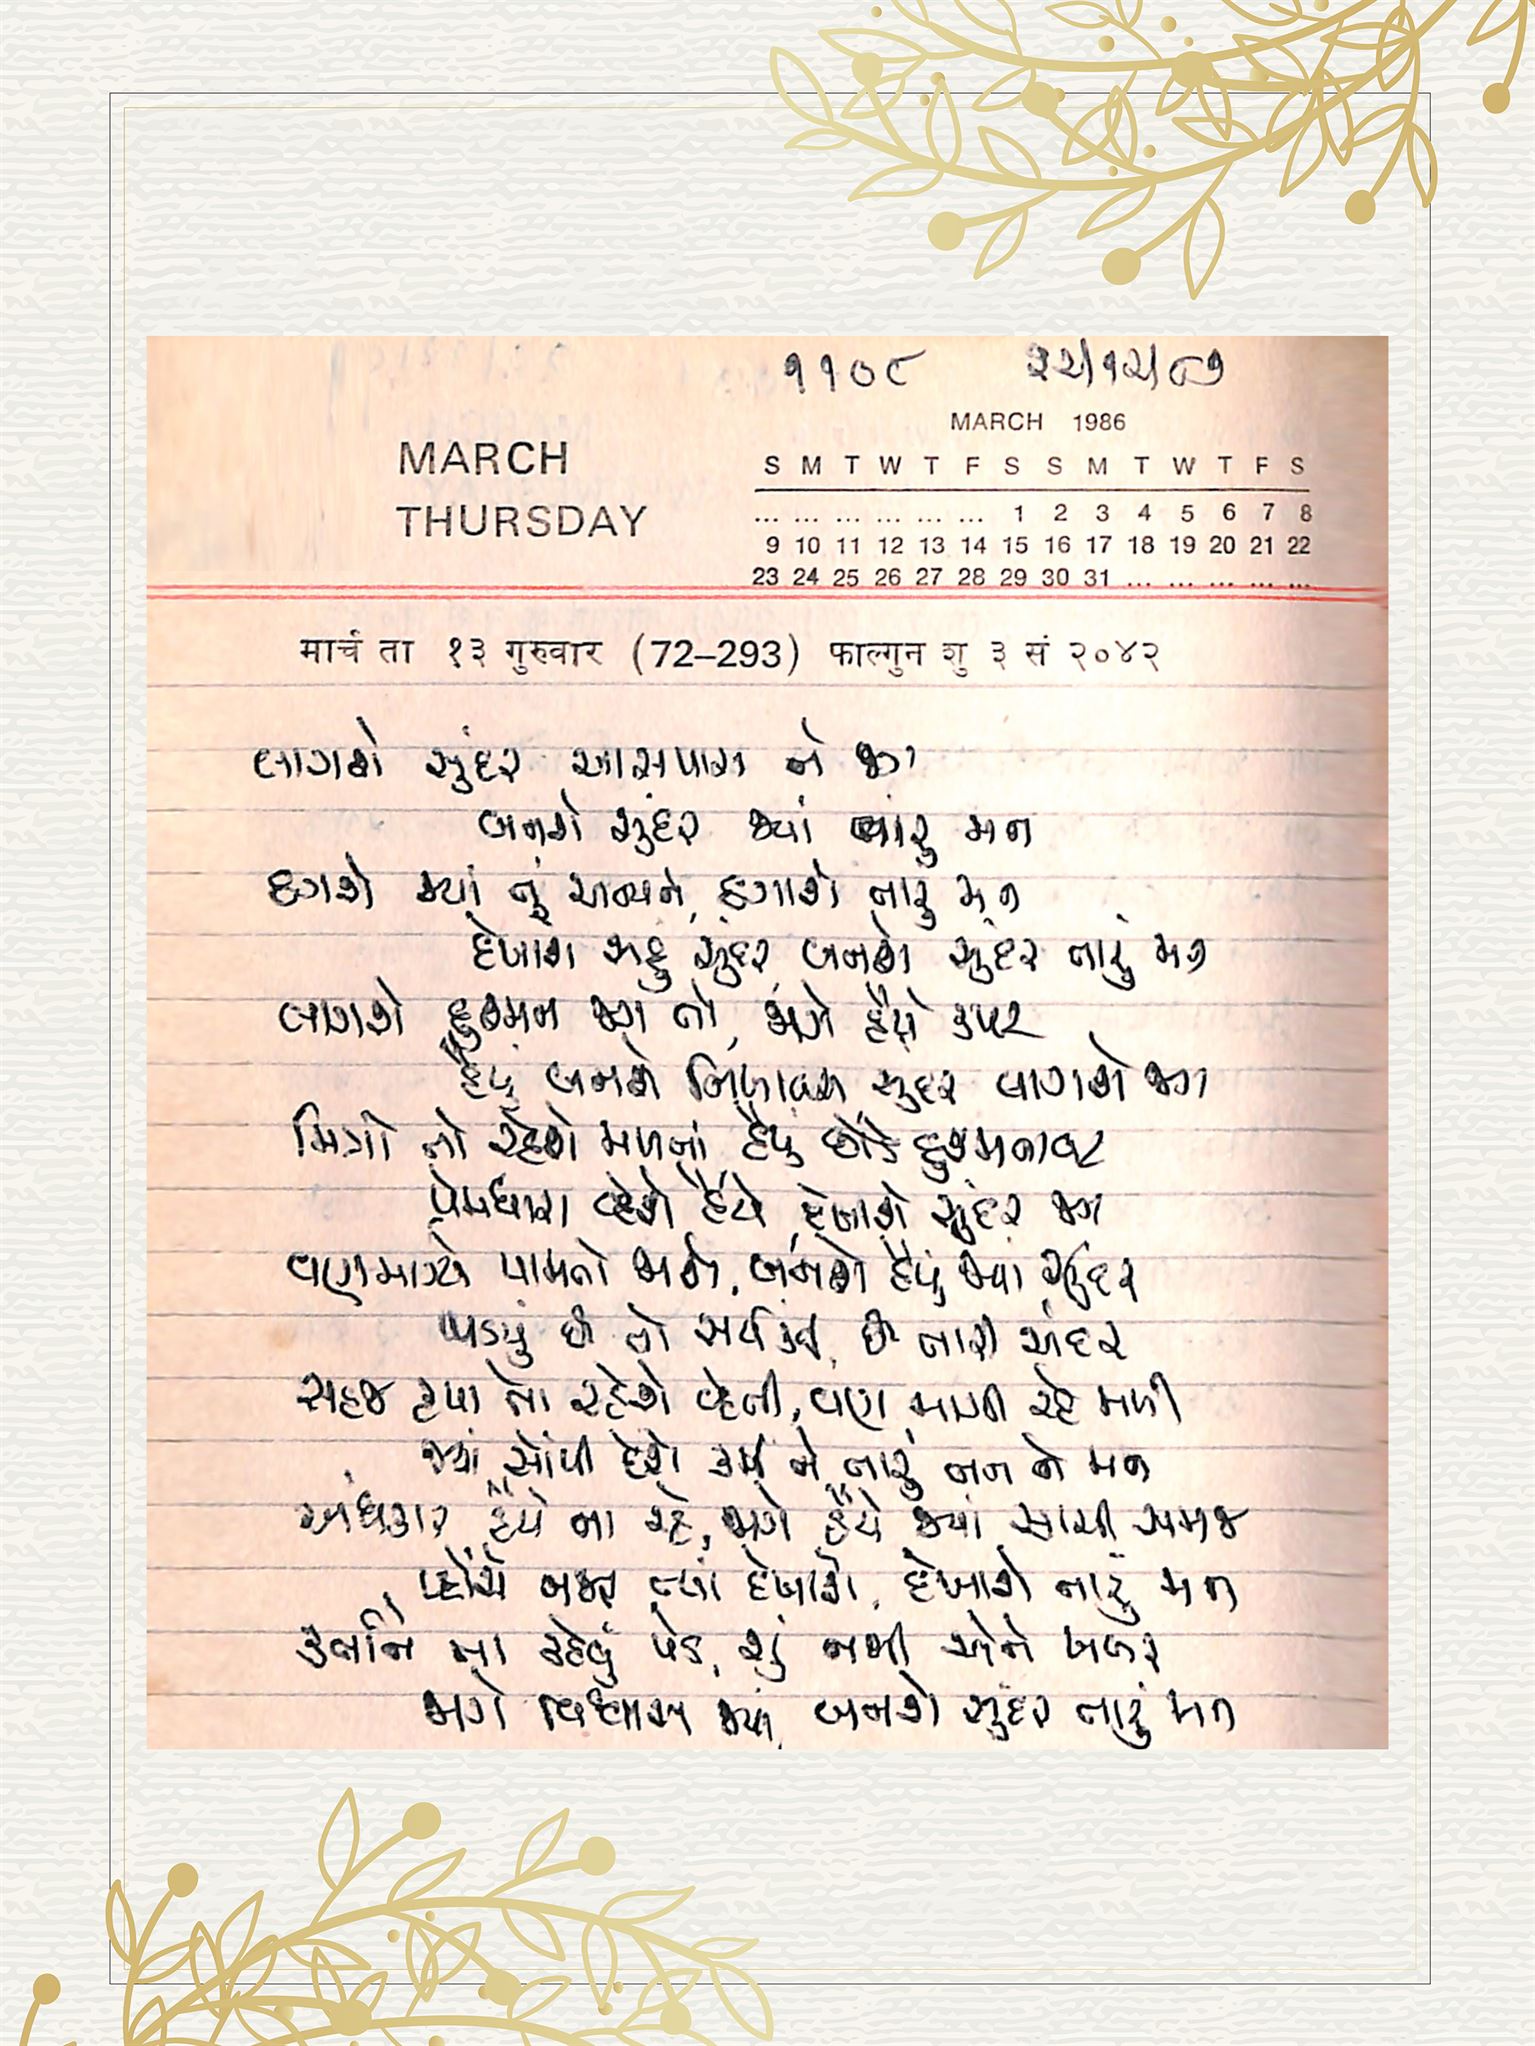 ૧૧૦૮ ૨૨/૧૨/૮૭
MARCH 1986
MARCH
THURSDAY
S M T W T F S S M T W T F S
... ... ... ... ... ... 1 2 3 4 5 6 7 8
9 10 11 12 13 14 15 16 17 18 19 20 21 22
23 24 25 26 27 28 29 30 31 ... ... ... ... ...
मार्च ता १३ गुरुवार (72–293) फाल्गुन शु ३ सं २०४२
લાગશે સુંદર આસપાસ ને જગ
બનશે સુંદર જ્યાં તારું મન
ઠગશે જ્યાં તું અન્યને, ઠગાશે તારું મન
દેખાશે સહુ સુંદર, બનશે સુંદર તારું મન
લાગશે દુશ્મન જગ તો, જાગે હૈયે કપટ
હૈયું બનશે નિખાલસ સુંદર લાગશે જગ
મિત્રો તો રહેશે મળતાં હૈયું છોડે દુશ્મનાવટ
પ્રેમધારા વ્હેશે હૈયે, દેખાશે સુંદર જગ
વણમાગ્યે પામતો જાશે, બનશે હૈયું જ્યાં સુંદર
પડયું છે તો સર્વ કંઈ, છે તારી અંદર
સહજ કૃપા તો રહેશે વ્હેતી, વણ માગી રહે મળી
જ્યાં સોંપી દેશે કર્મ ને તારું તન ને મન
અંધકાર હૈયે ના રહે, જાગે હૈયે જ્યાં સાચી સમજ
પ્હોંચે નજર ત્યાં દેખાશે, દેખાશે તારું મન
કર્તાને ના કહેવું પડે, શું નથી એને ખબર
જાગે વિશ્વાસ જ્યાં, બનશે સુંદર તારું મન